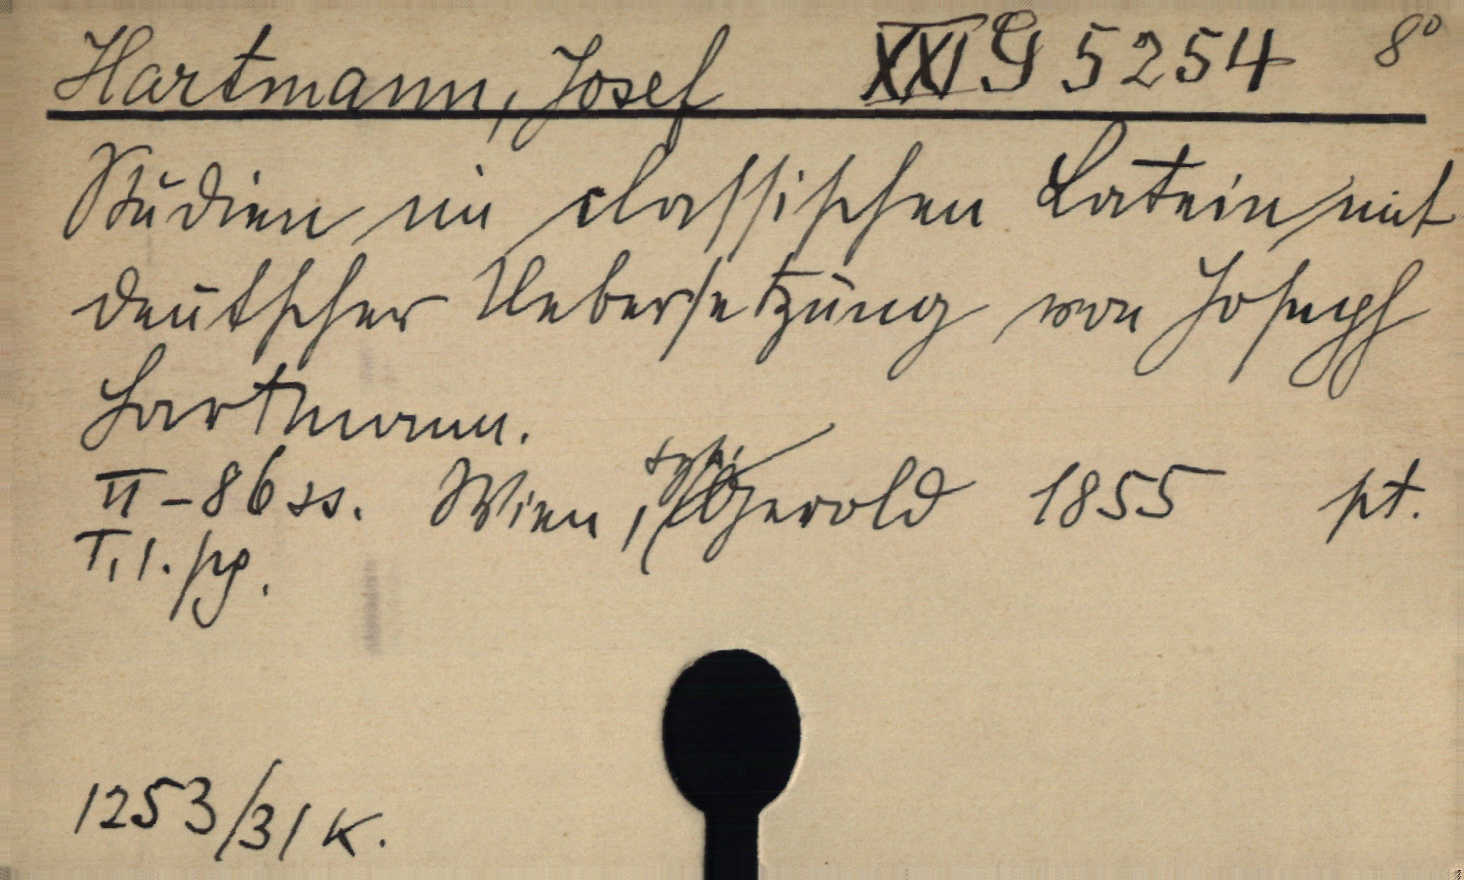 Hartmann, Josef XXI G 5254 8°
Studien im classischen Latein mit
deutscher Uebersetzung von Joseph
Hartmann.
II-86 ss. Wien, typ. Gerold 1855 pt.
T. 1. pg.
1253/31 K.